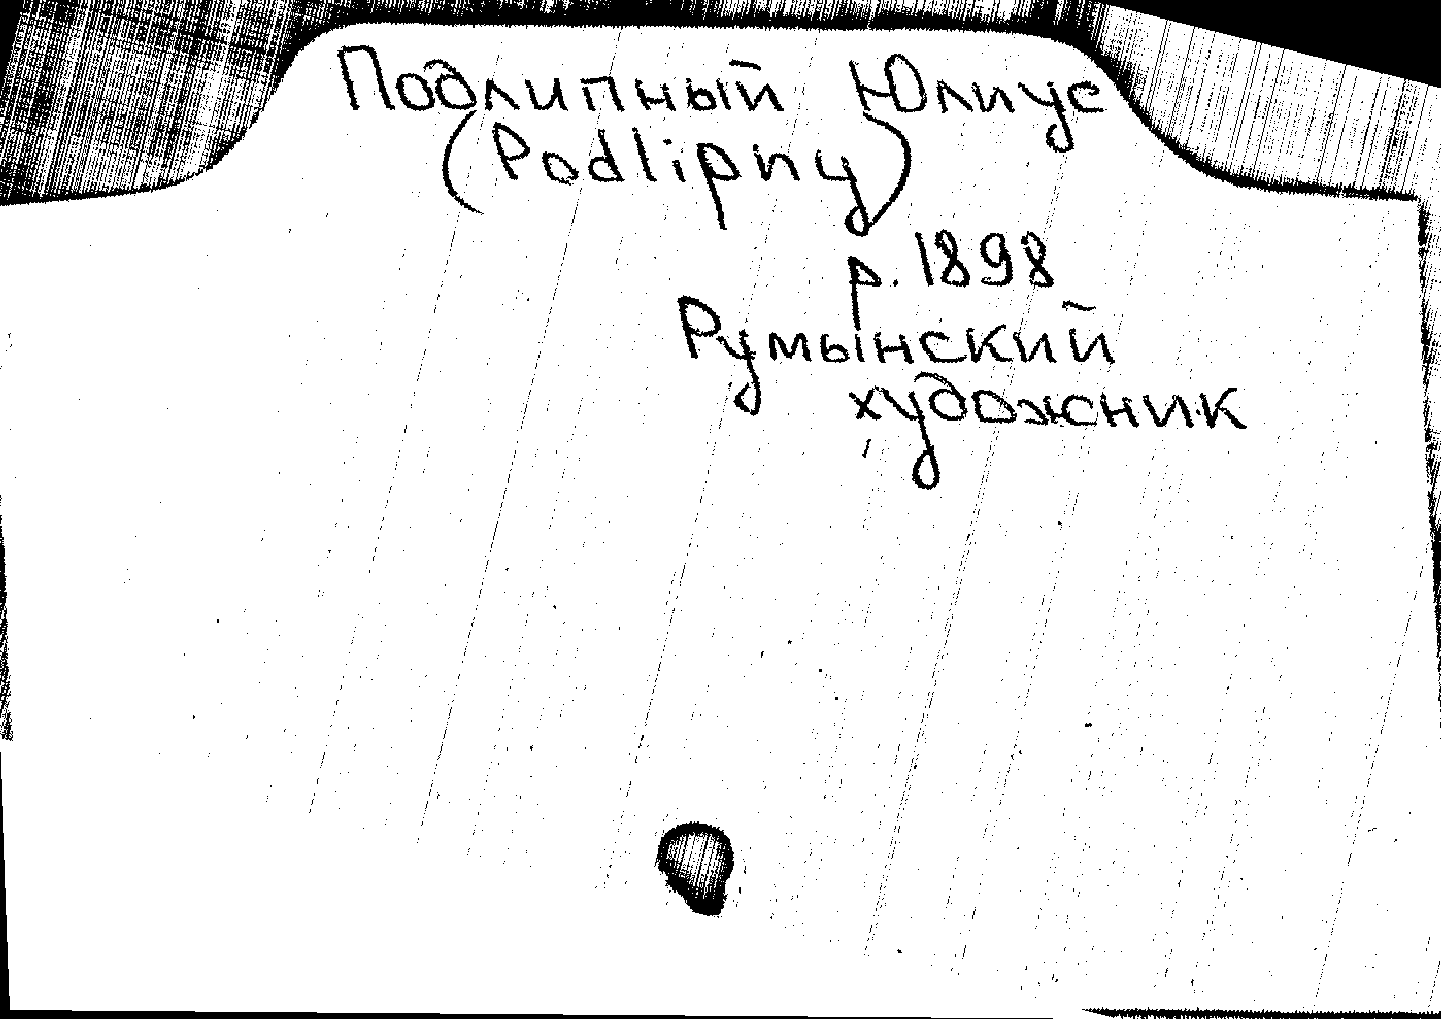 Подлипный Юлиус
(Podlipny)
р. 1898
Румынский
художник